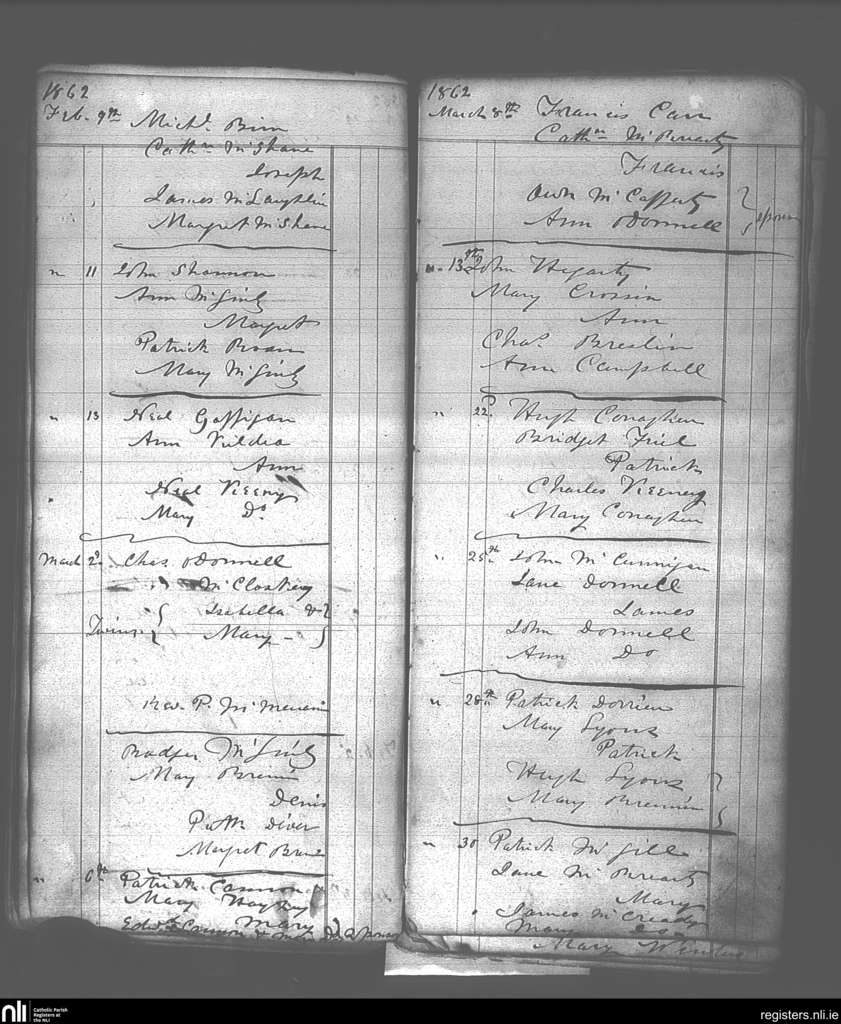 1862
Feb. 9th Michl. Birn
Cathn McShane
Joseph
James McLaughlin
Margret McShane
" 11 John Shannon
Ann McGinly
Margret
Patrick
Mary McGinly
" 13 Neal Gaffigan
Ann Kildea
Ann
Neal Keeny
Mary Do.
March 2d. Chas. ODonnell
McCloskey
Isabella &
Twins Mary
Rev. P. McMenamin
Rodger McGinly
Mary
Denis
Diver
Margret
" 6th Patrick Cannon
Mary
Mary
1862
March 8th Francis Carr
Cathn McBrearty
Francis
Owen McCafferty
Ann ODonnell
" 13th John Hegarty
Mary Crossin
Ann
Chas. Breslin
Ann Campbell
" 22d Hugh Conaghan
Bridget Friel
Patrick
Charles Keeney
Mary Conaghan
" 25th John McCunnigan
Jane Donnell
James
John Donnell
Ann Do
" 28th Patrick Dorrien
Mary Lyons
Patrick
Hugh Lyons
Mary
" 30 Patrick McGill
Jane McBrearty
Mary
James McCready
Mary
nli Catholic Parish
Registers at
the NLI
registers.nli.ie